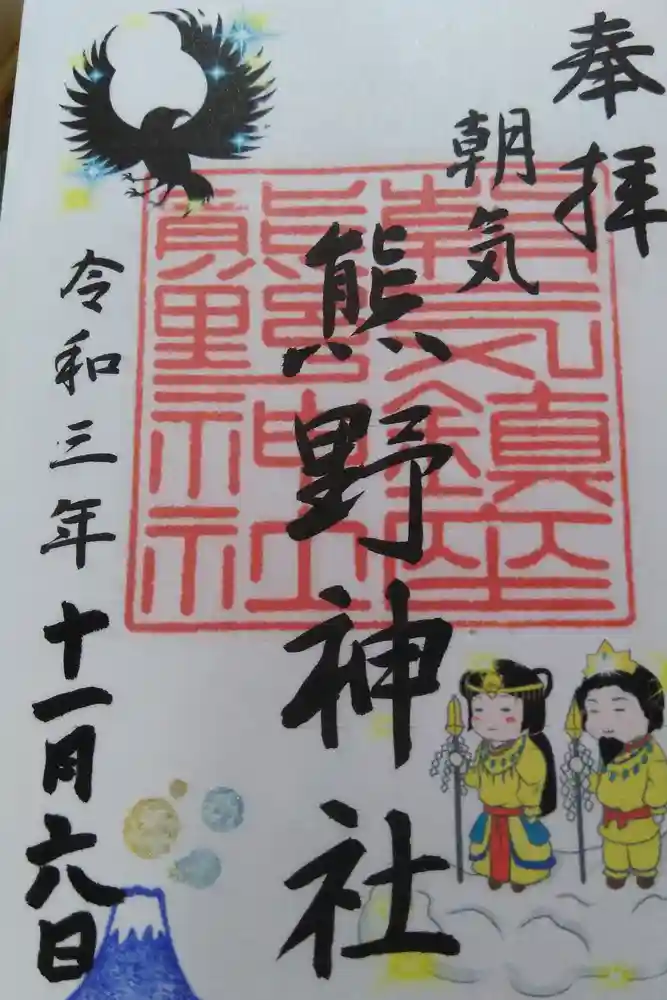 奉拝
朝気
熊野神社
令和三年十一月六日
朝気鎮座
熊野神社